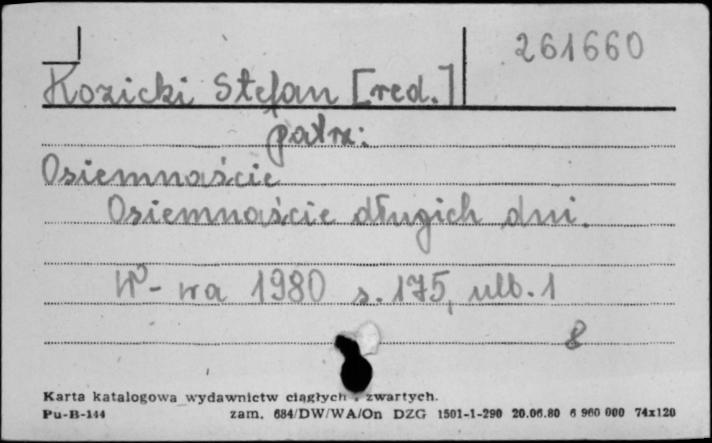 261660
Kozicki Stefan [red.]
patrz:
Osiemnaście
Osiemnaście długich dni.
W-wa 1980 s. 175, nlb. 1
8
Karta katalogowa wydawnictw ciągłych i zwartych.
Pu-B-144 zam. 684/DW/WA/On DZG 1501-1-290 20.06.80 6 960 000 74x120